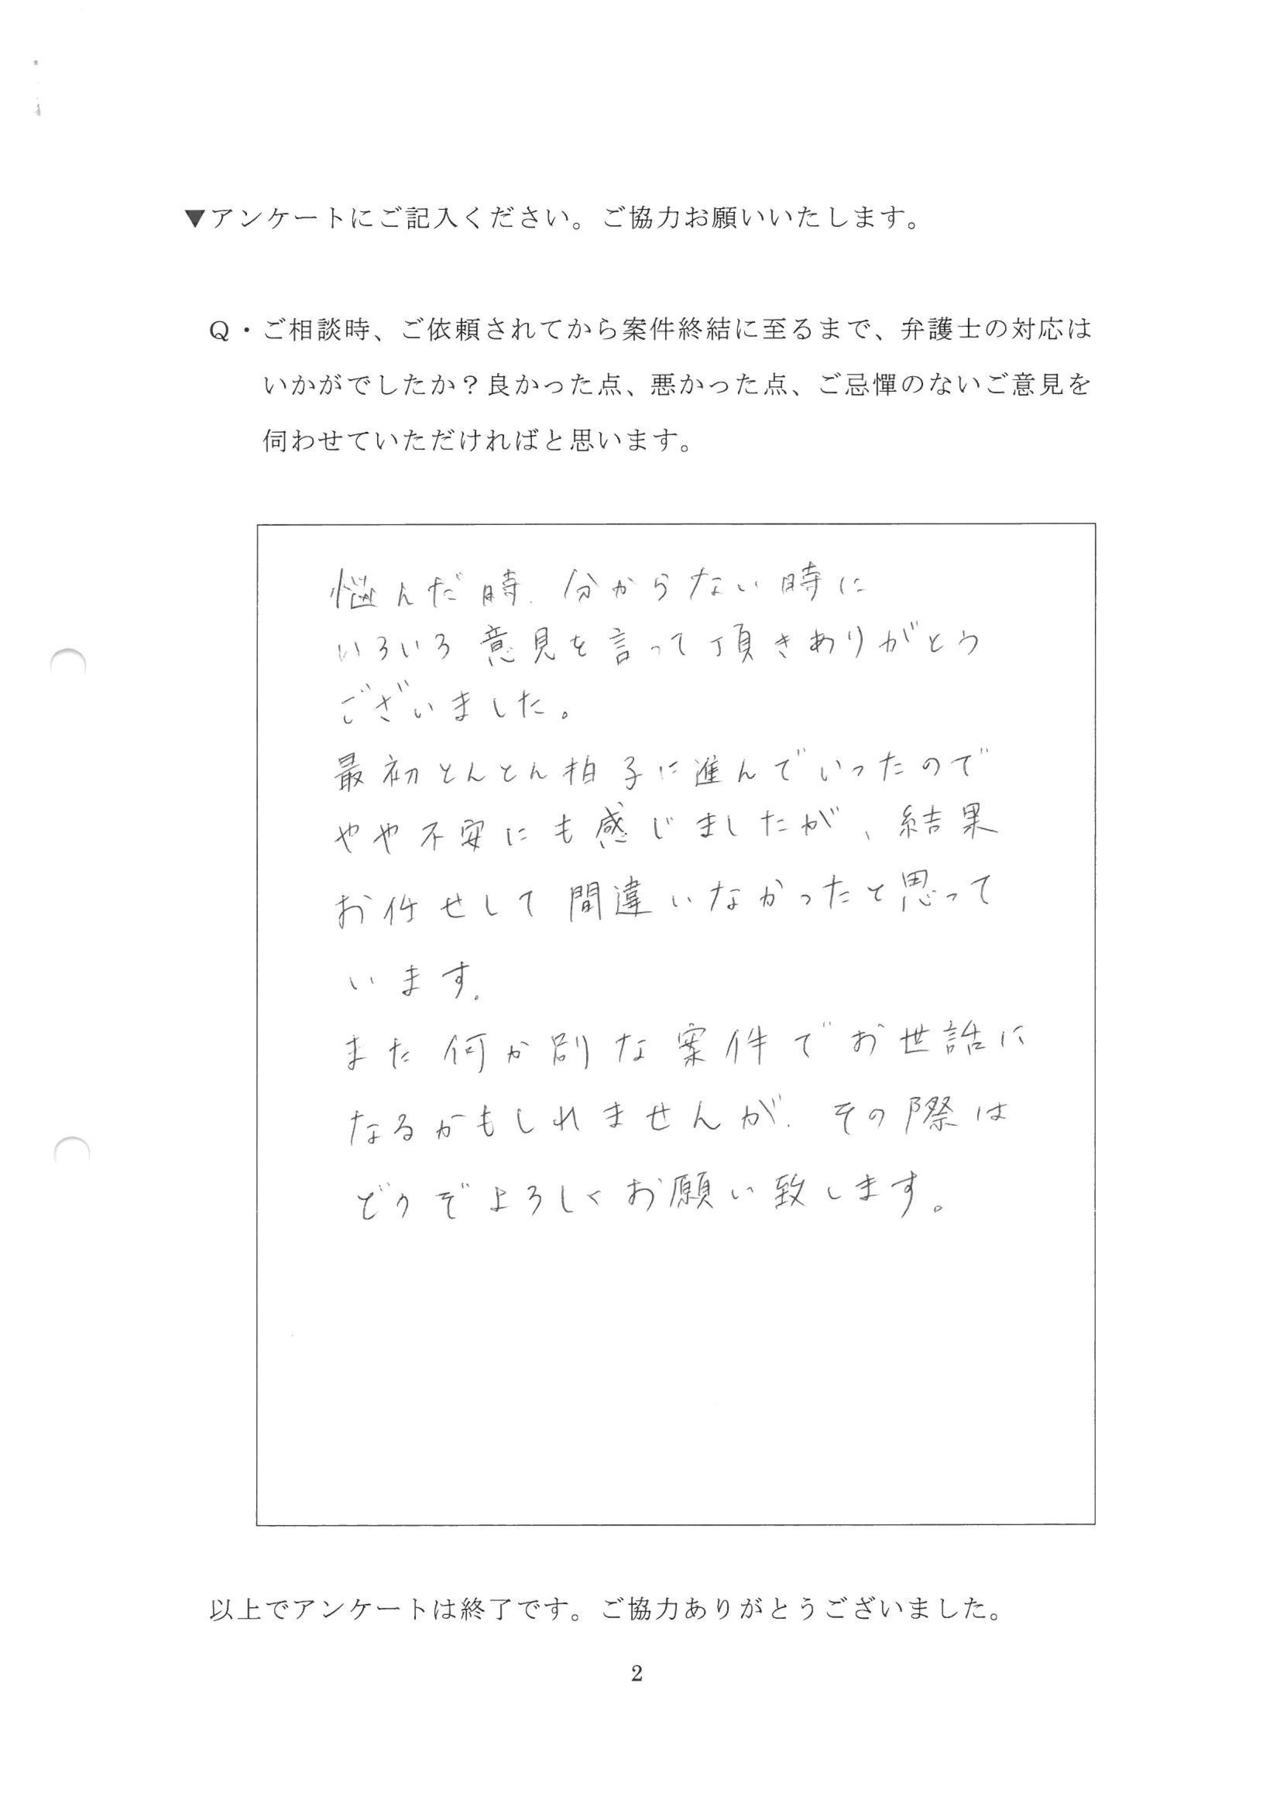 ▼アンケートにご記入ください。ご協力お願いいたします。
Q・ご相談時、ご依頼されてから案件終結に至るまで、弁護士の対応は
いかがでしたか？良かった点、悪かった点、ご忌憚のないご意見を
伺わせていただければと思います。
悩んだ時、分からない時に
いろいろ意見を言って頂きありがとう
ございました。
最初とんとん拍子に進んでいったので
やや不安にも感じましたが、結果
お任せして間違いなかったと思って
います。
また何か別な案件でお世話に
なるかもしれませんが、その際は
どうぞよろしくお願い致します。
以上でアンケートは終了です。ご協力ありがとうございました。
2